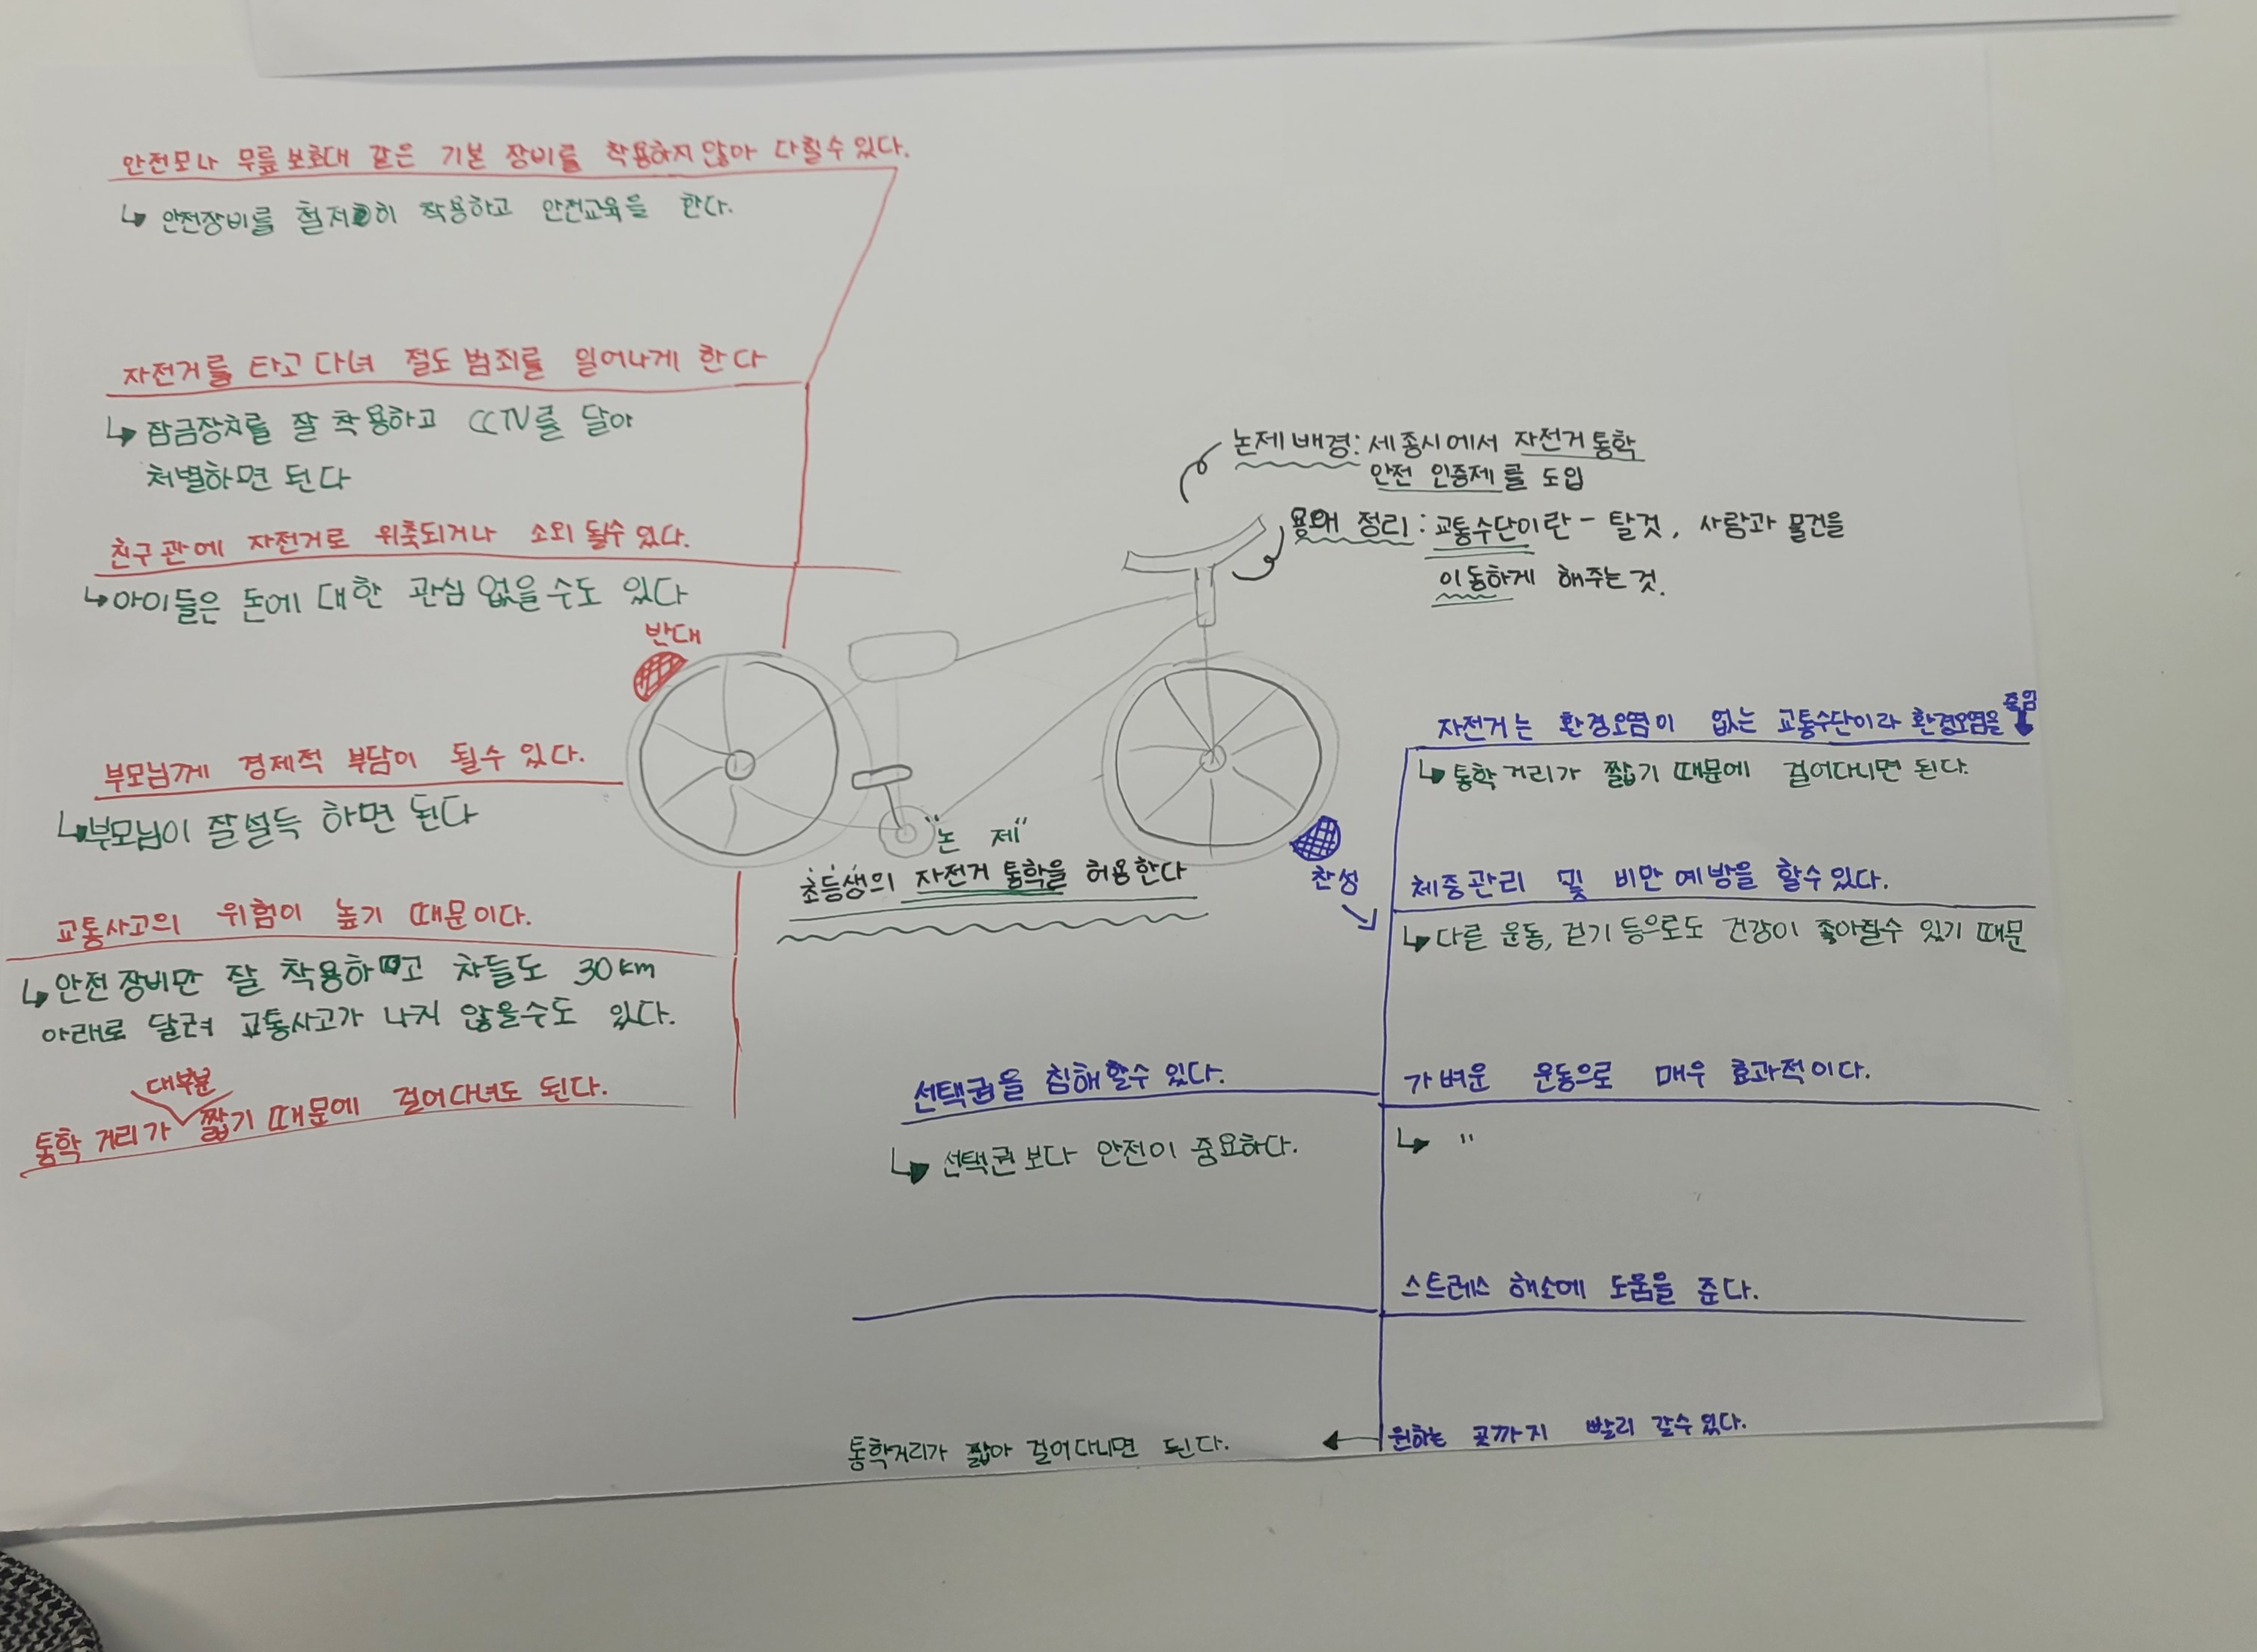 안전모나 무릎 보호대 같은 기본 장비를 착용하지 않아 다칠수 있다.
↳ 안전장비를 철저히 착용하고 안전교육을 한다.
자전거를 타고 다녀 절도 범죄를 일어나게 한다
↳ 잠금장치를 잘 착용하고 CCTV를 달아
처벌하면 된다
친구 관에 자전거로 위축되거나 소외 될수 있다.
↳ 아이들은 돈에 대한 관심 없을 수도 있다
반대
부모님께 경제적 부담이 될수 있다.
↳ 부모님이 잘 설득 하면 된다
교통사고의 위험이 높기 때문이다.
↳ 안전 장비만 잘 착용하고 차들도 30km
아래로 달려 교통사고가 나지 않을수도 있다.
대부분
통학 거리가 짧기 때문에 걸어다녀도 된다.
논제 배경: 세종시에서 자전거 통학
안전 인증제를 도입
정리 : 교통수단이란 - 탈것, 사람과 물건을
이동하게 해주는 것.
"논 제"
초등생의 자전거 통학을 허용한다
찬성
줄임
자전거는 환경오염이 없는 교통수단이라 환경오염을 ↓
↳ 통학 거리가 짧기 때문에 걸어다니면 된다.
체중관리 및 비만 예방을 할수 있다.
↳ 다른 운동, 걷기 등으로도 건강이 좋아질수 있기 때문
가벼운 운동으로 매우 효과적이다.
↳ "
선택권을 침해 할수 있다.
↳ 선택권 보다 안전이 중요하다.
스트레스 해소에 도움을 준다.
원하는 곳까지 빨리 갈수 있다.
통학거리가 짧아 걸어다니면 된다.